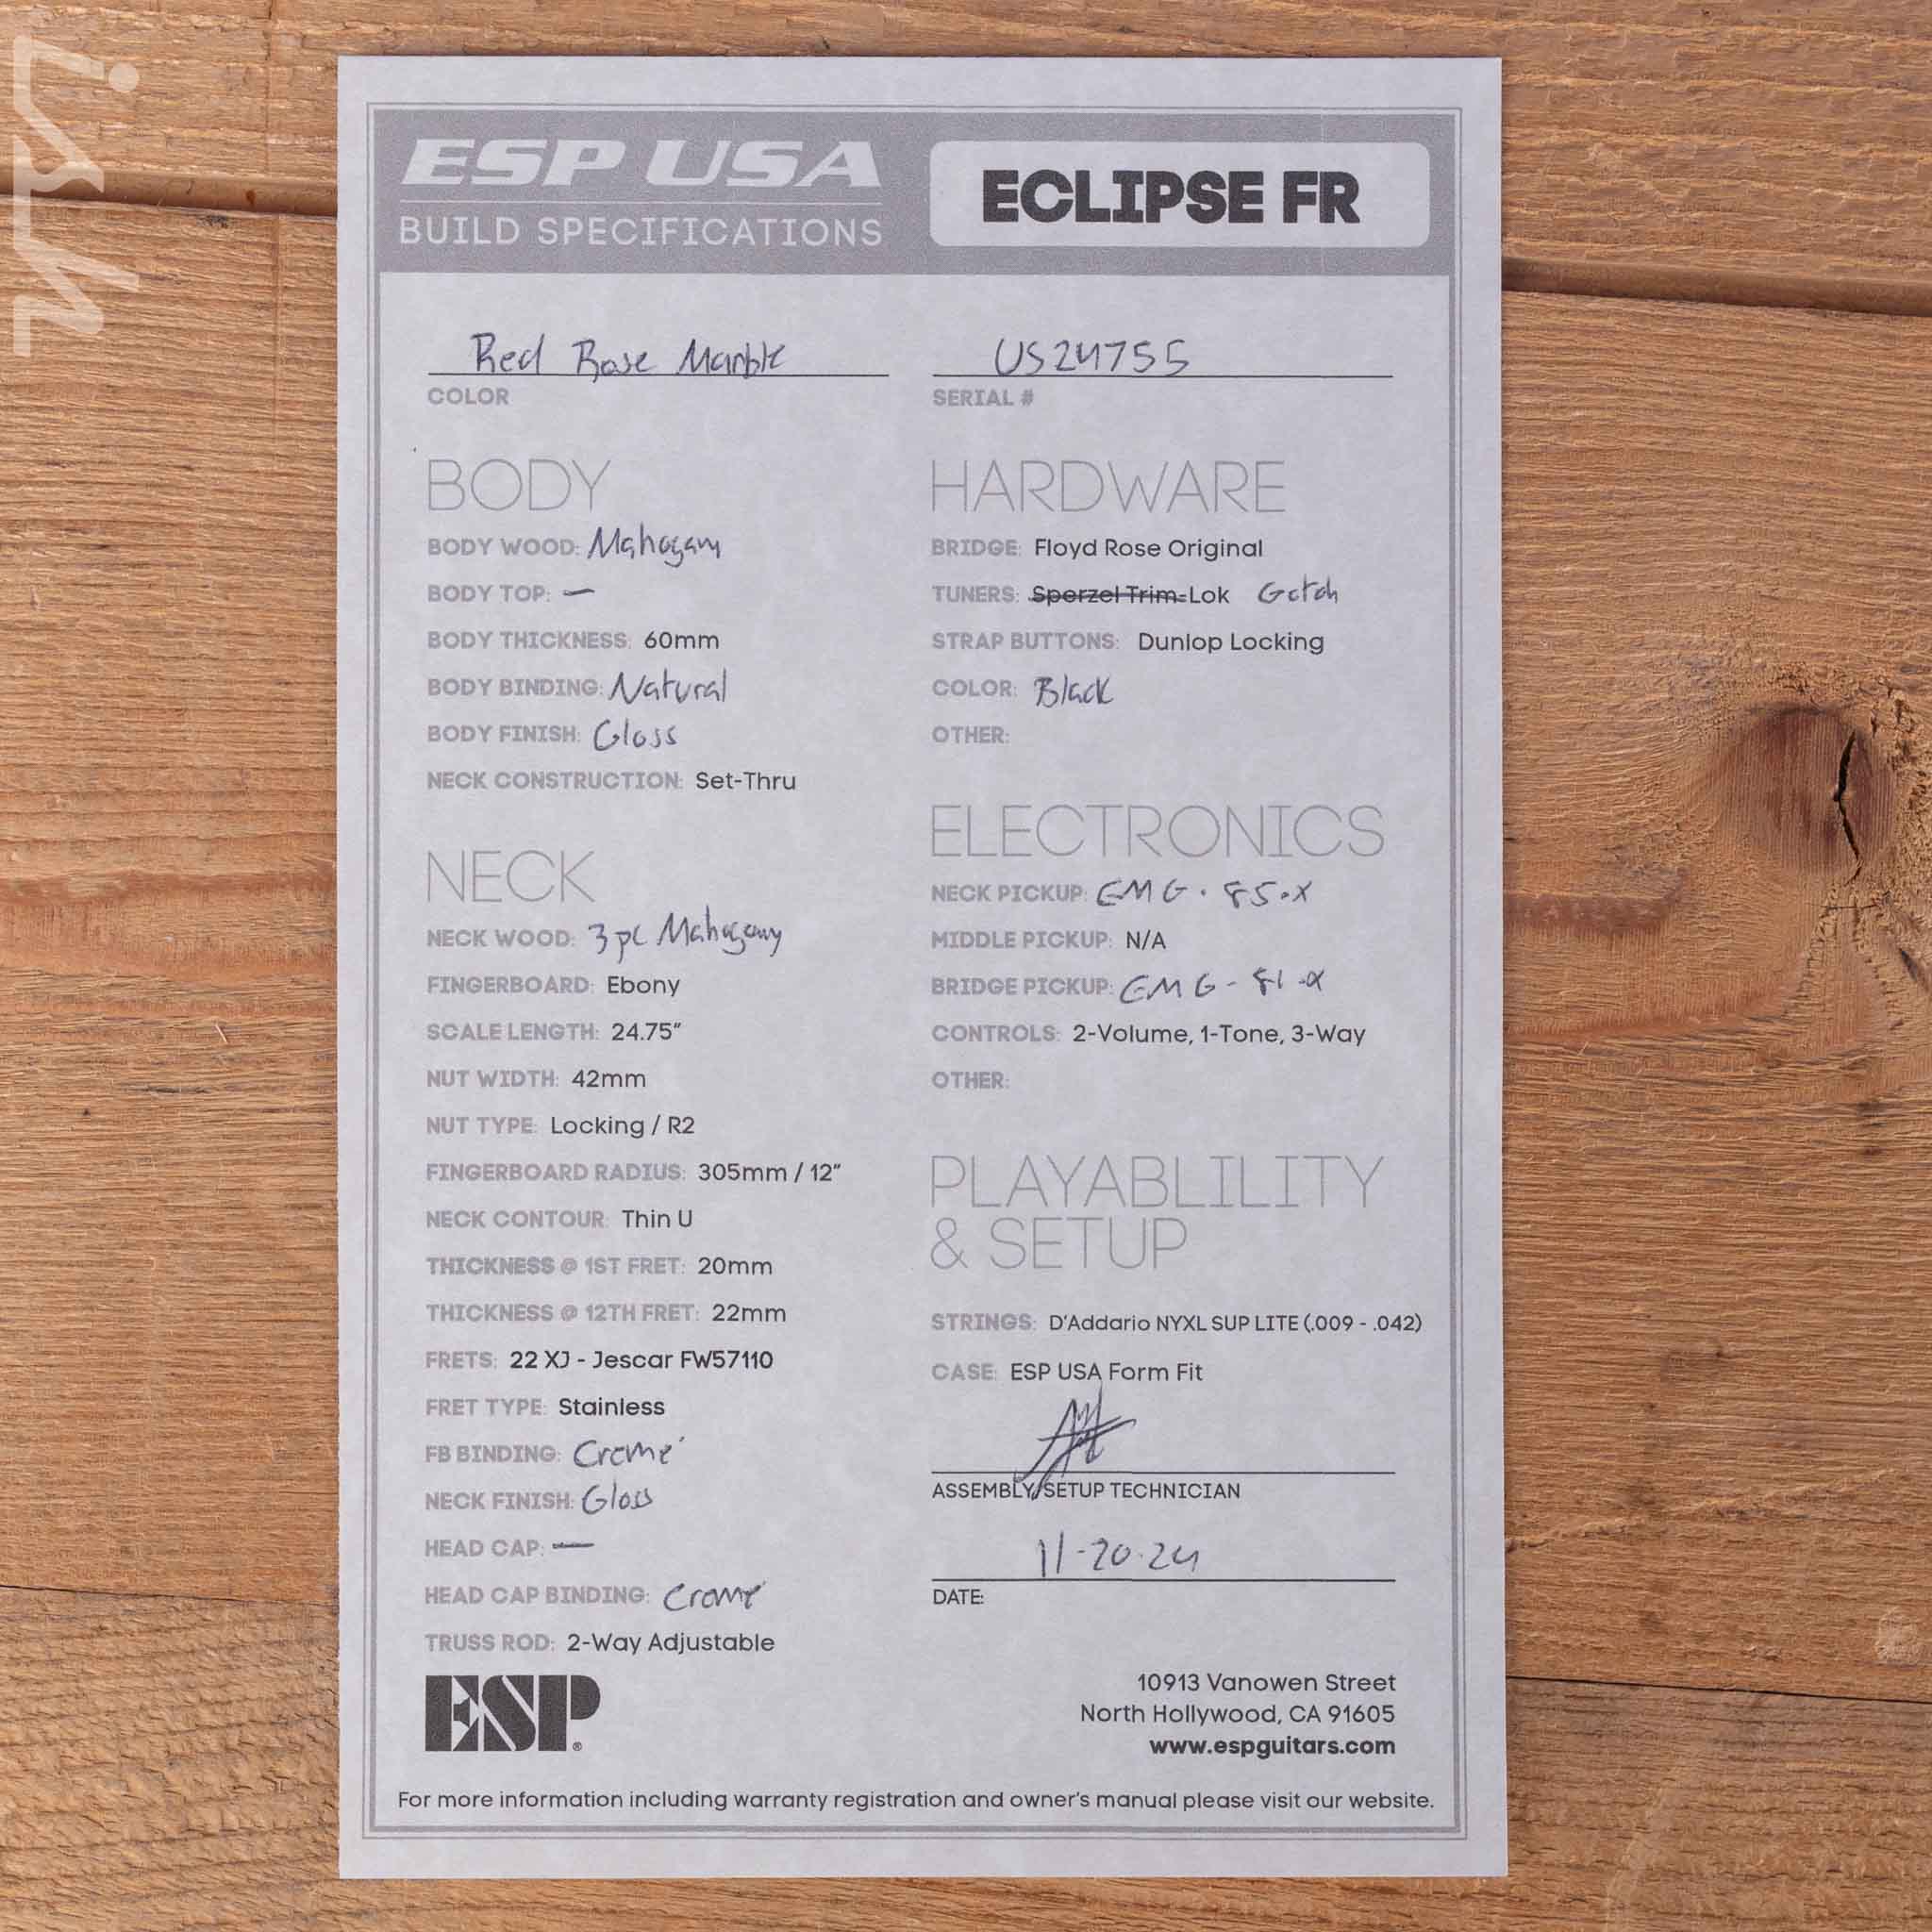 ish
ESP USA
BUILD SPECIFICATIONS
ECLIPSE FR
Red Rose Marble
COLOR
US24755
SERIAL #
BODY
BODY WOOD: Mahogany
BODY TOP: —
BODY THICKNESS: 60mm
BODY BINDING: Natural
BODY FINISH: Gloss
NECK CONSTRUCTION: Set-Thru
NECK
NECK WOOD: 3 pc Mahogany
FINGERBOARD: Ebony
SCALE LENGTH: 24.75"
NUT WIDTH: 42mm
NUT TYPE: Locking / R2
FINGERBOARD RADIUS: 305mm / 12"
NECK CONTOUR: Thin U
THICKNESS @ 1ST FRET: 20mm
THICKNESS @ 12TH FRET: 22mm
FRETS: 22 XJ - Jescar FW57110
FRET TYPE: Stainless
FB BINDING: Cremé
NECK FINISH: Gloss
HEAD CAP: —
HEAD CAP BINDING: Cremé
TRUSS ROD: 2-Way Adjustable
HARDWARE
BRIDGE: Floyd Rose Original
TUNERS: Sperzel Trim-Lok Gotoh
STRAP BUTTONS: Dunlop Locking
COLOR: Black
OTHER:
ELECTRONICS
NECK PICKUP: EMG - 85-X
MIDDLE PICKUP: N/A
BRIDGE PICKUP: EMG - 81-X
CONTROLS: 2-Volume, 1-Tone, 3-Way
OTHER:
PLAYABLILITY
& SETUP
STRINGS: D'Addario NYXL SUP LITE (.009 - .042)
CASE: ESP USA Form Fit
ASSEMBLY/SETUP TECHNICIAN
11-20-24
DATE:
ESP®
10913 Vanowen Street
North Hollywood, CA 91605
www.espguitars.com
For more information including warranty registration and owner's manual please visit our website.